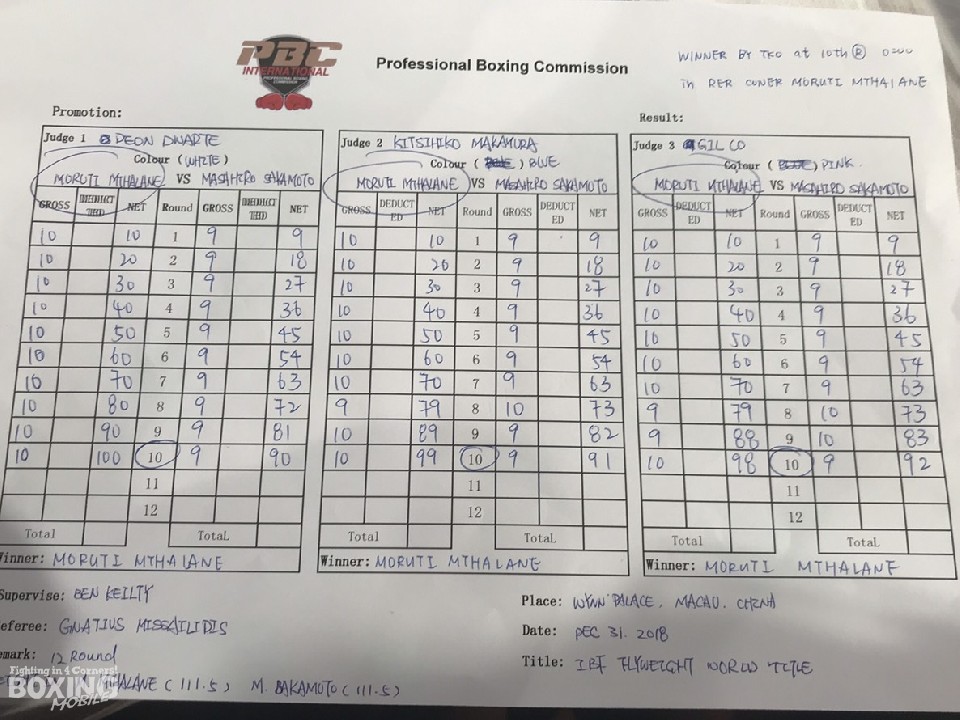 PBC
INTERNATIONAL
PROFESSIONAL BOXING
COMMISSION
Professional Boxing Commission
WINNER BY TKO at 10th Ⓡ
in RER CONER MORUTI MTHALANE
Promotion:
Result:
Judge 1 DEON DWARTE
Colour (WHITE)
MORUTI MTHALANE VS MASAHIRO SAKAMOTO
GROSS DEDUCTED NET Round GROSS DEDUCTED NET
10 10 1 9 9
10 20 2 9 18
10 30 3 9 27
10 40 4 9 36
10 50 5 9 45
10 60 6 9 54
10 70 7 9 63
10 80 8 9 72
10 90 9 9 81
10 100 10 9 90
11
12
Total Total
Winner: MORUTI MTHALANE
Judge 2 KITSIHIKO MAKAMURA
Colour ( ) BLUE
MORUTI MTHALANE VS MASAHIRO SAKAMOTO
GROSS DEDUCTED NET Round GROSS DEDUCTED NET
10 10 1 9 9
10 20 2 9 18
10 30 3 9 27
10 40 4 9 36
10 50 5 9 45
10 60 6 9 54
10 70 7 9 63
9 79 8 10 73
10 89 9 9 82
10 99 10 9 91
11
12
Total Total
Winner: MORUTI MTHALANE
Judge 3 GIL CO
Colour ( ) PINK
MORUTI MTHALANE VS MASAHIRO SAKAMOTO
GROSS DEDUCTED NET Round GROSS DEDUCTED NET
10 10 1 9 9
10 20 2 9 18
10 30 3 9 27
10 40 4 9 36
10 50 5 9 45
10 60 6 9 54
10 70 7 9 63
9 79 8 10 73
9 88 9 10 83
10 98 10 9 92
11
12
Total Total
Winner: MORUTI MTHALANE
Supervise: BEN KEILTY
eferee: GNATIUS MISSAILIDIS
emark: 12 Round
MTHALANE (111.5) M. SAKAMOTO (111.5)
Place: WYNN PALACE, MACAU. CHINA
Date: DEC 31. 2018
Title: IBF FLYWEIGHT WORLD TITLE
Fighting in 4 Corners!
BOXING
MOBILE